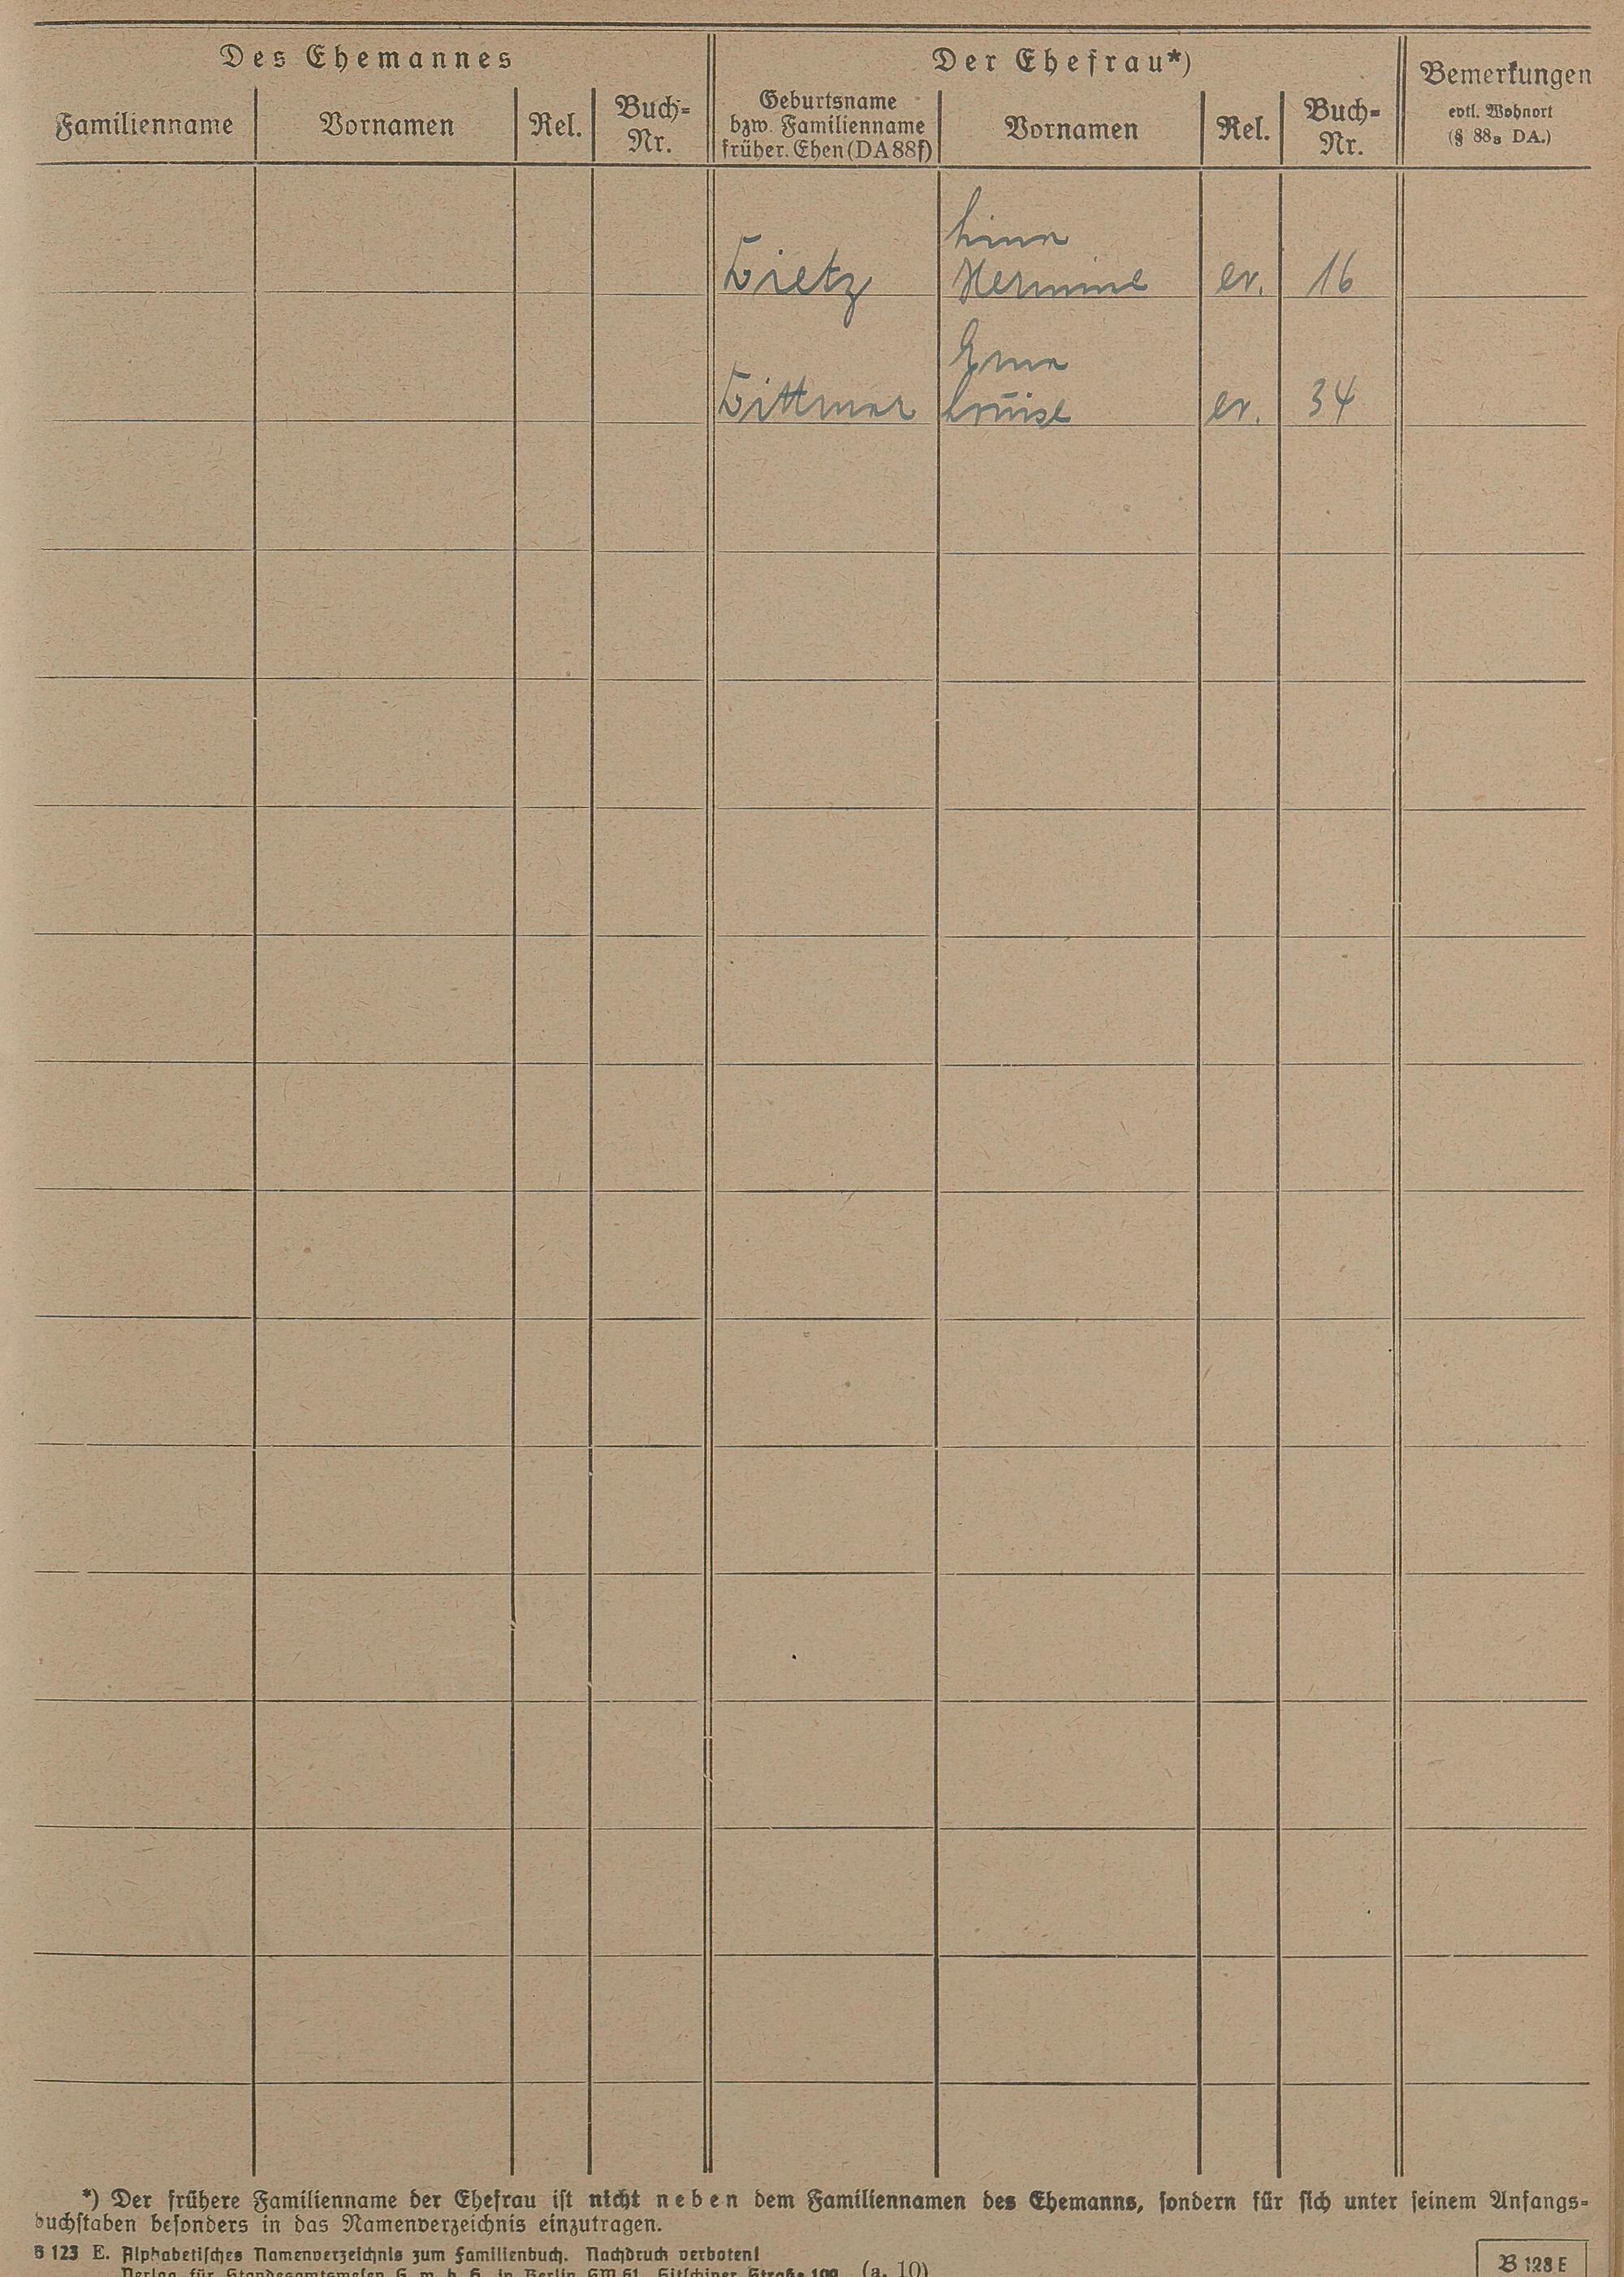 Des Ehemannes
Der Ehefrau*)
Bemerkungen
evtl. Wohnort
(§ 88₃ DA.)
Familienname
Vornamen
Rel.
Buch-
Nr.
Geburtsname
bzw. Familienname
früher. Ehen (DA 88f)
Vornamen
Rel.
Buch-
Nr.
Lina
Dietz Hermine ev. 16
Erna
Dittmar Louise ev. 34
*) Der frühere Familienname der Ehefrau ist nicht neben dem Familiennamen des Ehemanns, sondern für sich unter seinem Anfangs-
buchstaben besonders in das Namenverzeichnis einzutragen.
B 123 E. Alphabetisches Namenverzeichnis zum Familienbuch. Nachdruck verboten!
Verlag für Standesamtswesen G. m. b. H. in Berlin SW 61, Gitschiner Straße 109. (a. 10)
B 128 E